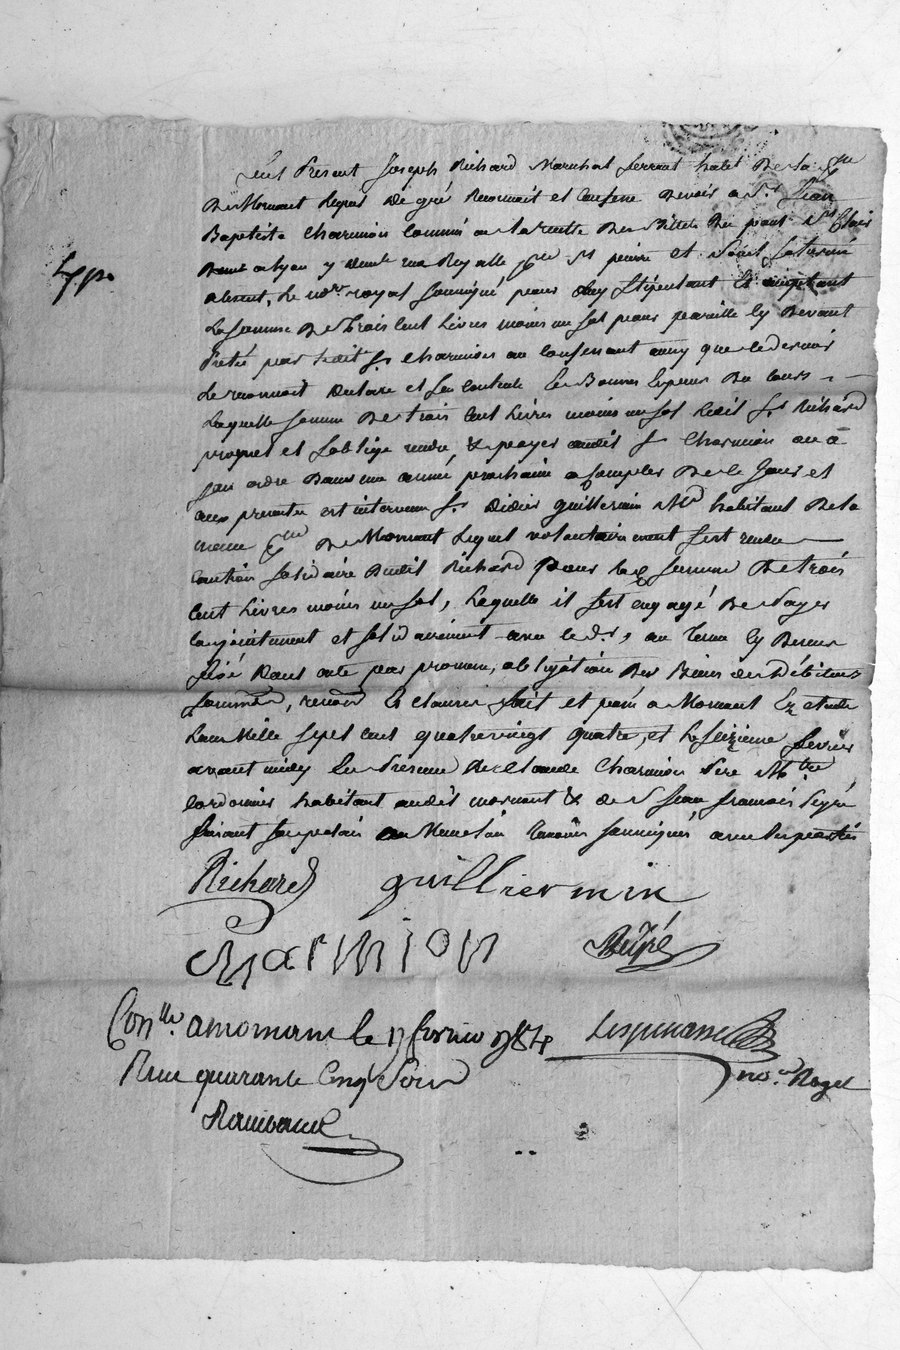 fut Present Joseph Richard Marechal ferrant habt De la psse
De Mornant lequel De gré Reconnait et Confesse Devoir a Sr. Jean
Baptiste Charmion Commis a la recette Des Billets Du pont St Clair
a Lyon y demt rue Royalle psse St pierre et Saint Saturnin
absent, le nore royal soussigné pour luy stipulant & acceptant
La somme De Trois Cent Livres moins un sol pour pareille cy Devant
Preté par ledit Sr. Charmion au Confessant ainsy que ce dernier
Le reconnait Declare et s'en Contente
Laquelle somme De trois Cent Livres moins un sol ledit Sr Richard
promet et s'oblige rendre, & payer audit Sr Charmion ou a
son ordre Dans une année prochaine a Compter De ce Jour et
aux presentes est intervenu Sr. Didier guillermin Md habitant De la
meme psse De Mornant Lequel volontairement s'est rendu
Caution solidaire Dudit Richard pour la somme De trois
Cent Livres moins un sol, Laquelle il s'est engagé De Payer
Conjointement et solidairement avec le dr., au Terme cy Dessus
fixé Dans cette par promesse, obligation Des Biens
soumon, renon & Clauses fait et passé a Mornant Etude
L'an Mille sept cent quatre vingt quatre, et le seizieme fevrier
avant midy En Presence De Claude Charmion Pere Mtre
Cordonnier habitant audit mornant & de Sr Jean francois
Temoins soussignés avec les parties
Richard guilliermin
Charmion
Conlle. a mornant le 17 fevrier 1784 Lespinasse
Reçu quarante Cinq Sous nore. Royal
Rambaud